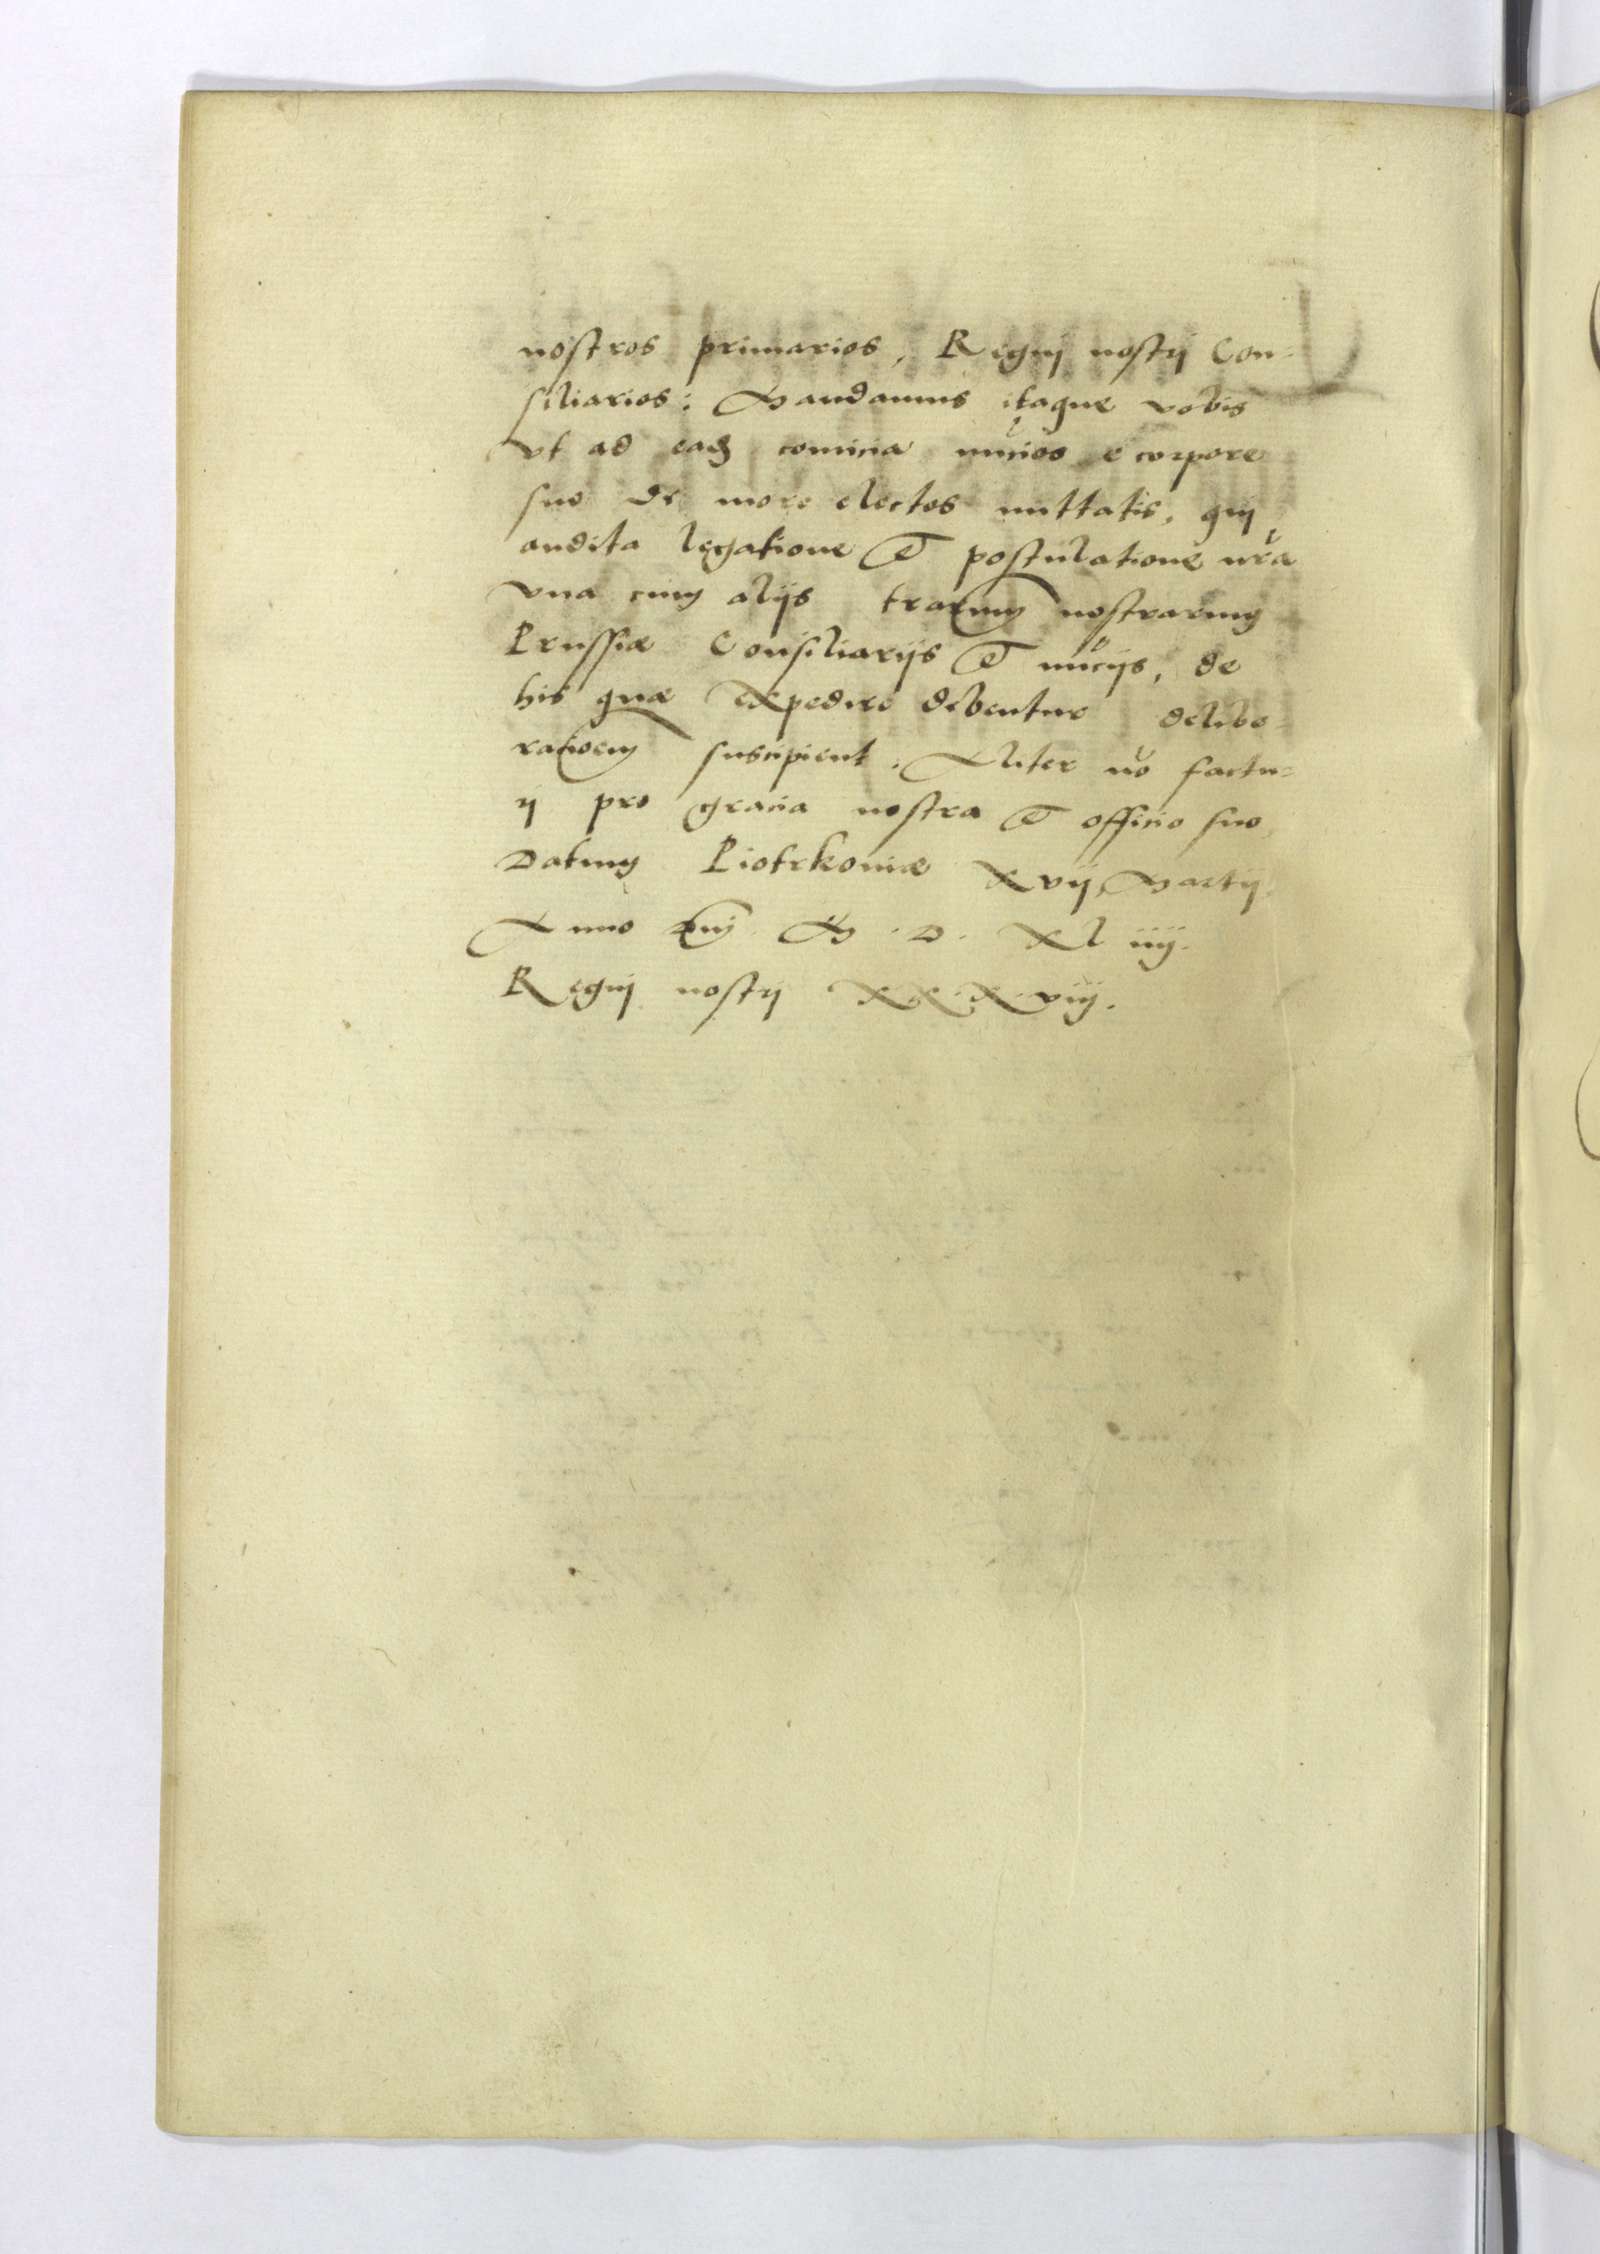 nostros primarios, Regnij nostrj Con-
siliarios: Mandamus itaque vobis
vt ad eadẽ comicia nũcios e corpore
suo de more electos mittatis, quj
audita legatione et postulatione nr̃a
vna cum alijs trarum nostrarum
Prussiæ Consiliarijs et nũcijs, de
his quæ expedire debentur delibe-
rationem suscipient. Aliter nõ factu-
rj pro gracia nostra et officio suo.
Datum Piotrkoviæ Xvij Martij
Anno Dnj. M. D. Xl iiij.
Regnj nostrj XXXviij.